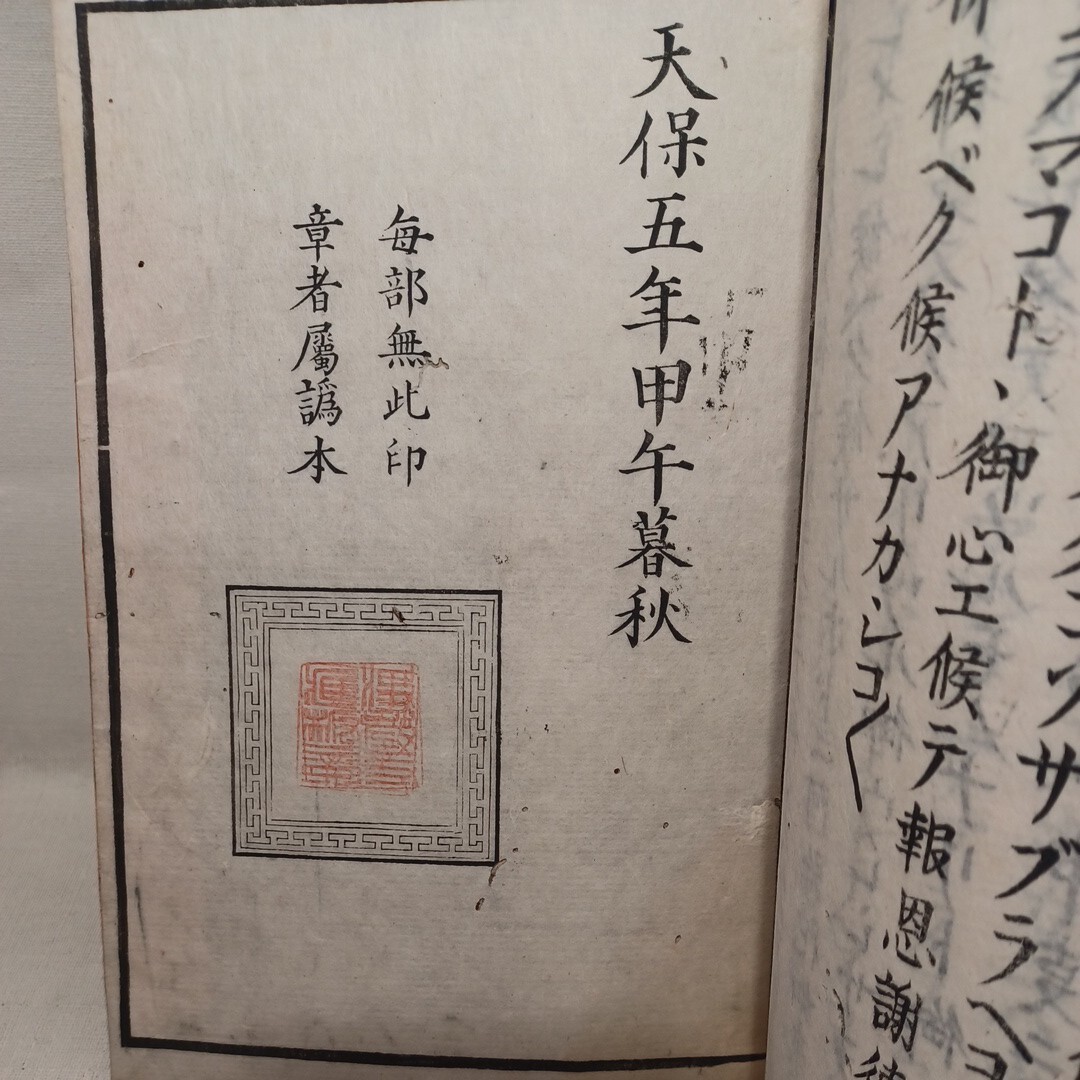 サブラヘ
マコト、御心エ候テ報恩謝
候ベク候アナカシコ〱
天保五年甲午暮秋
毎部無此印
章者屬譌本